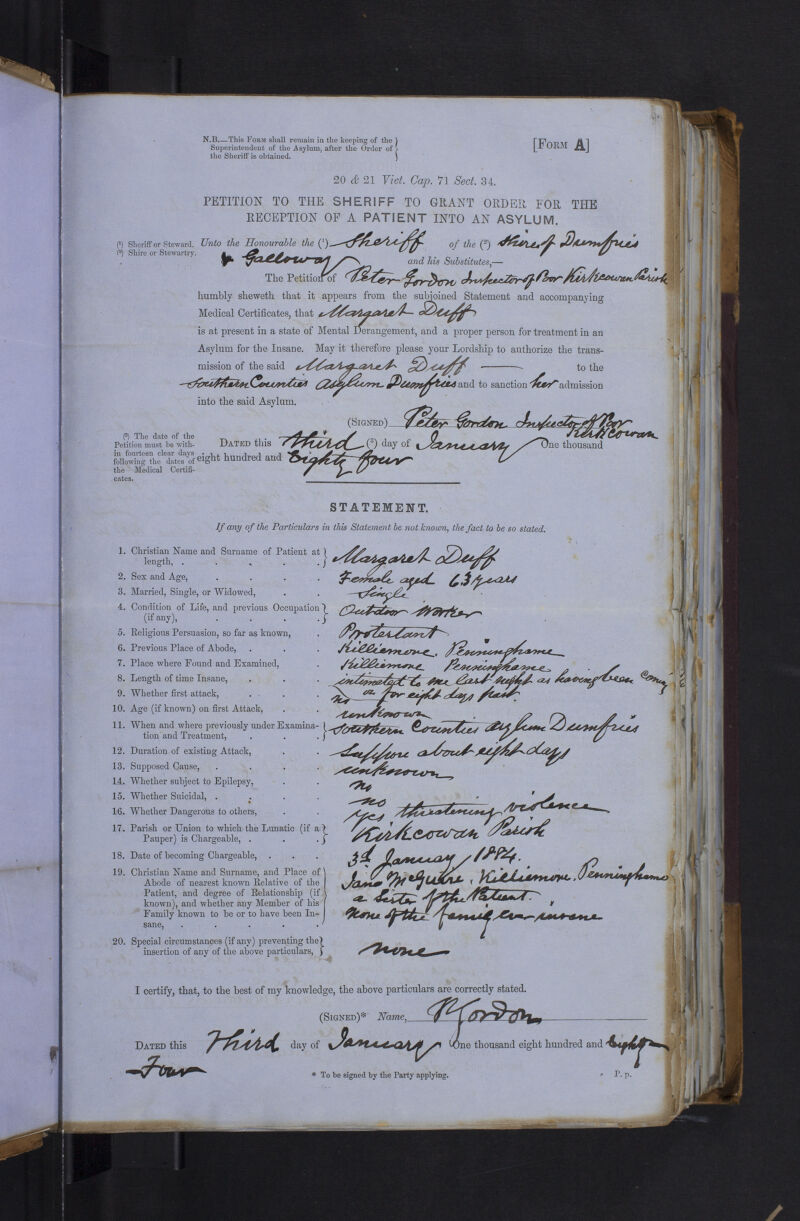 N.B.—This Form shall remain in the keeping of the
Superintendent of the Asylum, after the Order of
the Sheriff is obtained.
[Form A]
20 & 21 Vict. Cap. 71 Sect. 34.
PETITION TO THE SHERIFF TO GRANT ORDER FOR THE
RECEPTION OF A PATIENT INTO AN ASYLUM.
(¹) Sheriff or Steward.
(²) Shire or Stewartry.
Unto the Honourable the (¹) Sheriff of the (²) Shire of Dumfries
& Galloway and his Substitutes,—
The Petition of Peter Gordon Inspector of Poor Kirkcowan Parish
humbly sheweth that it appears from the subjoined Statement and accompanying
Medical Certificates, that Margaret Duff
is at present in a state of Mental Derangement, and a proper person for treatment in an
Asylum for the Insane. May it therefore please your Lordship to authorize the trans-
mission of the said Margaret Duff to the
Southern Counties Asylum Dumfries and to sanction her admission
into the said Asylum.
(Signed) Peter Gordon Inspector of Poor
Kirkcowan
(³) The date of the
Petition must be with-
in fourteen clear days
following the dates of
the Medical Certifi-
cates.
Dated this Third (³) day of January One thousand
eight hundred and Eighty four
STATEMENT.
If any of the Particulars in this Statement be not known, the fact to be so stated.
1. Christian Name and Surname of Patient at
length, . . . . . Margaret Duff
2. Sex and Age, . . . . Female aged 63 years
3. Married, Single, or Widowed, . . Single
4. Condition of Life, and previous Occupation
(if any), . . . . . Outdoor Worker
5. Religious Persuasion, so far as known, . Protestant
6. Previous Place of Abode, . . . Killiemore, Penninghame
7. Place where Found and Examined, . Killiemore Penninghame
8. Length of time Insane, . . . intimated to me last night as having been coming
on for eight days past.
9. Whether first attack, . . . . no
10. Age (if known) on first Attack, . . unknown
11. When and where previously under Examina-
tion and Treatment, . . . Southern Counties Asylum Dumfries
12. Duration of existing Attack, . . Suppose about eight days
13. Supposed Cause, . . . . unknown
14. Whether subject to Epilepsy, . . no
15. Whether Suicidal, . . . . no
16. Whether Dangerous to others, . . yes threatening violence
17. Parish or Union to which the Lunatic (if a
Pauper) is Chargeable, . . . Kirkcowan Parish
18. Date of becoming Chargeable, . . . 3d January 1884.
19. Christian Name and Surname, and Place of
Abode of nearest known Relative of the
Patient, and degree of Relationship (if
known), and whether any Member of his
Family known to be or to have been In-
sane, . . . . .
Jane McGuire, Killiemore, Penninghame
a Sister of the Patient.
None of the family ever insane
20. Special circumstances (if any) preventing the
insertion of any of the above particulars, none
I certify, that, to the best of my knowledge, the above particulars are correctly stated.
(Signed)* Name, P Gordon
Dated this Third day of January One thousand eight hundred and Eighty
Four
* To be signed by the Party applying.
P. p.